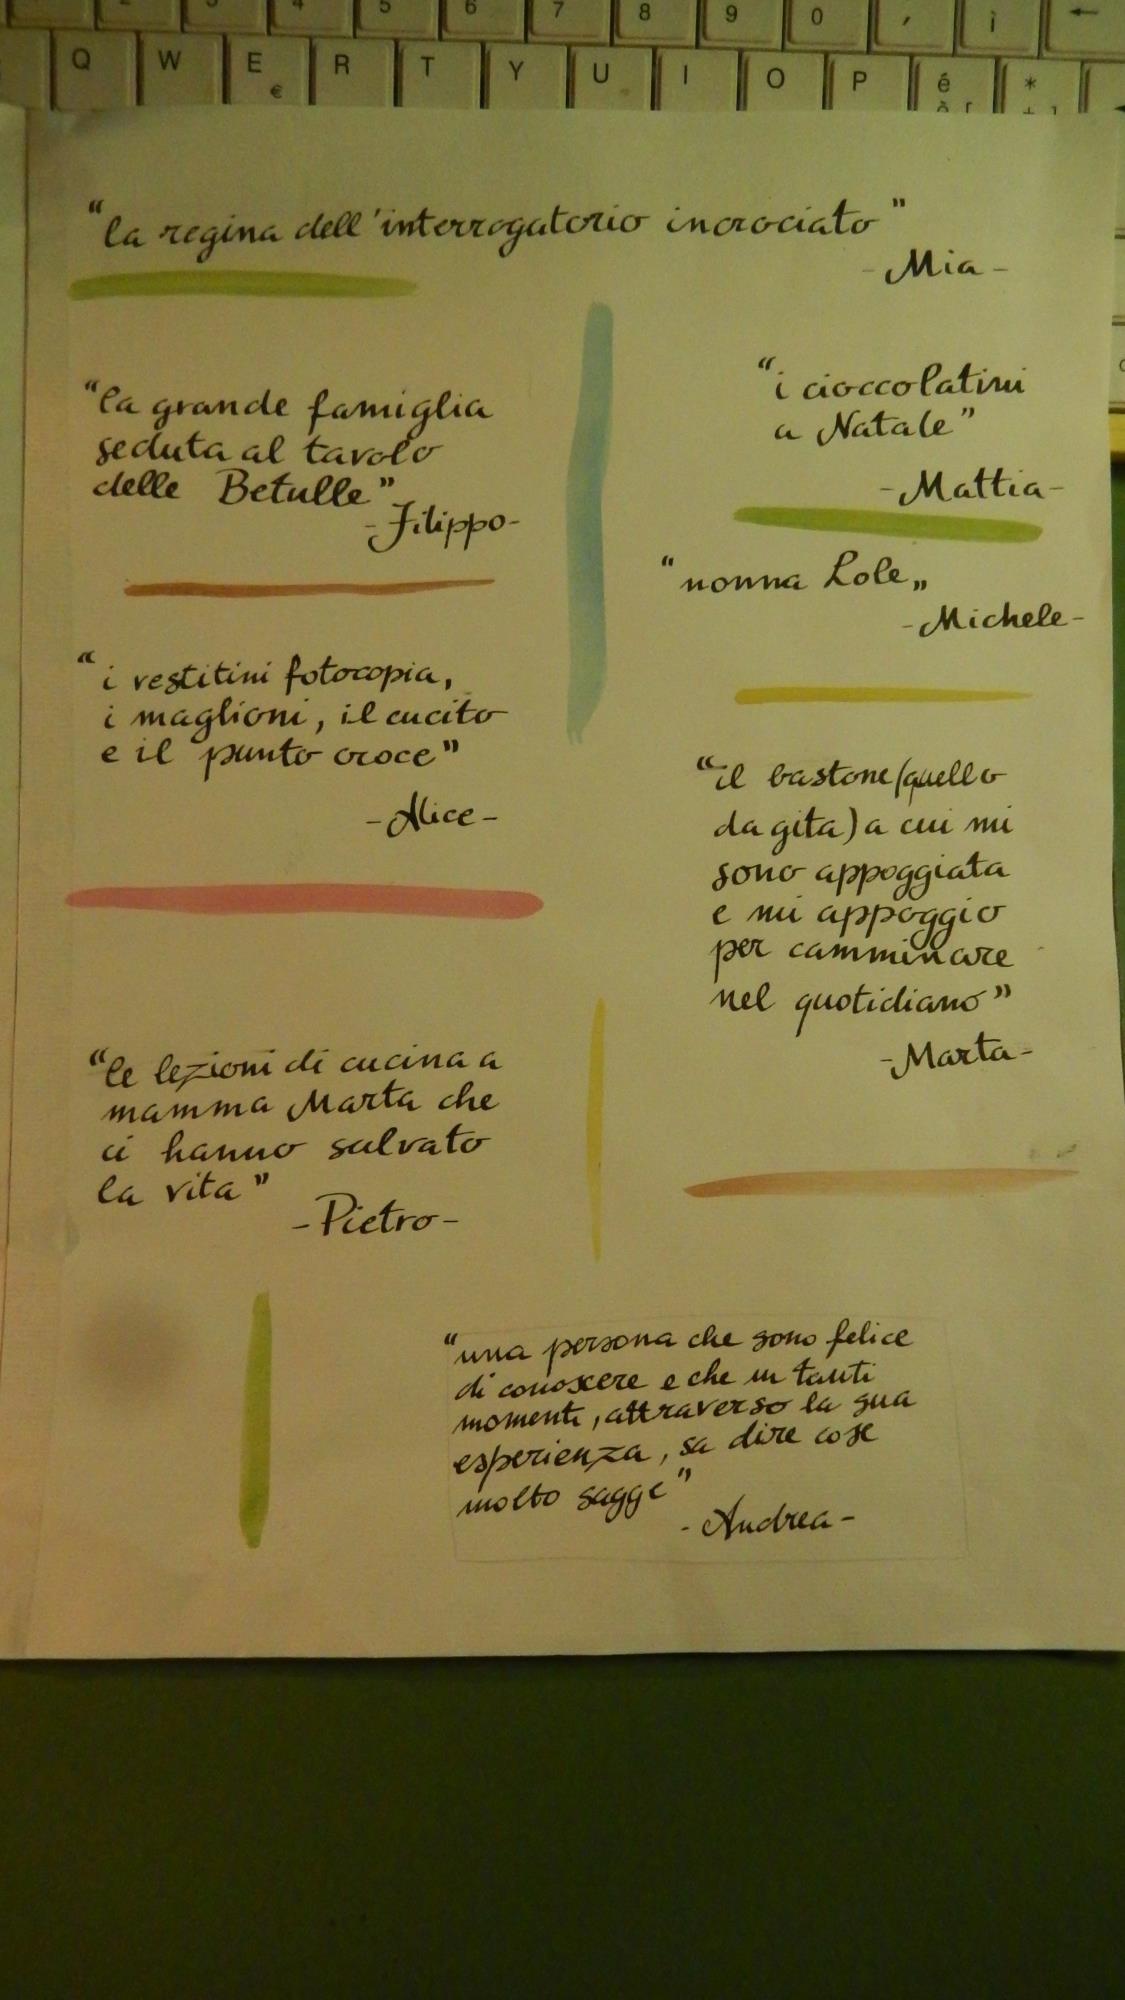 3 4 5 6 7 8 9 0 , ì ←
Q W E R T Y U I O P é *
€
"la regina dell'interrogatorio incrociato"
- Mia -
"la grande famiglia
seduta al tavolo
delle Betulle"
- Filippo -
"i cioccolatini
a Natale"
- Mattia -
"nonna Lole„
- Michele -
"i vestitini fotocopia,
i maglioni, il cucito
e il punto croce"
- Alice -
"il bastone (quello
da gita) a cui mi
sono appoggiata
e mi appoggio
per camminare
nel quotidiano"
- Marta -
"le lezioni di cucina a
mamma Marta che
ci hanno salvato
la vita"
- Pietro -
"una persona che sono felice
di conoscere e che in tanti
momenti, attraverso la sua
esperienza, sa dire cose
molto sagge"
- Andrea -